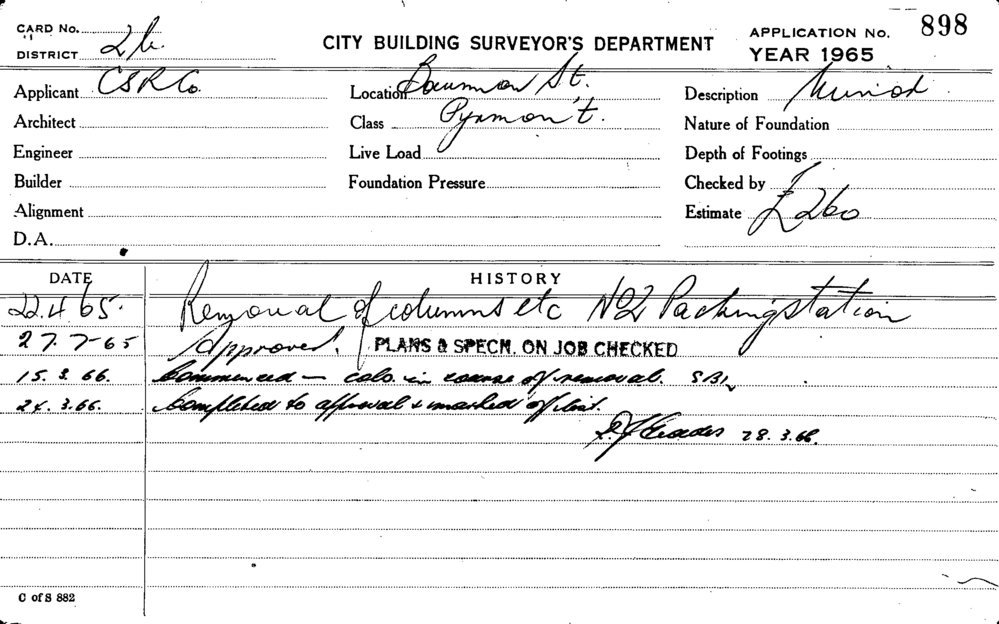 CARD No.
DISTRICT 2b.
CITY BUILDING SURVEYOR'S DEPARTMENT
APPLICATION No. 898
YEAR 1965
Applicant CSR Co.
Location Bowman St.
Description
Architect
Class Pyrmont.
Nature of Foundation
Engineer
Live Load
Depth of Footings
Builder
Foundation Pressure
Checked by
Alignment
Estimate £260
D.A.
DATE HISTORY
22.4 65. Removal of columns etc No2 Packing station
27.7-65 Approved. PLANS & SPECN. ON JOB CHECKED
15.3.66. Commenced — cols. in course of removal.
24.3.66. Completed to approval & marked off list.
28.3.66.
C of S 882